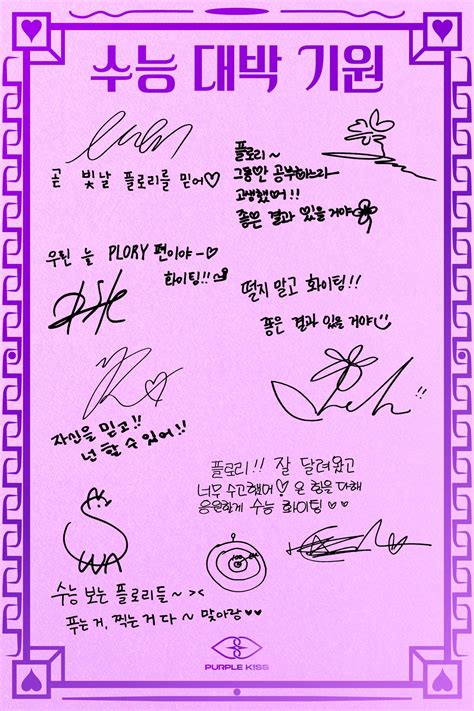 수능 대박 기원
곧 빛날 플로리를 믿어♡
플로리~
그동안 공부하느라
고생했어!!
좋은 결과 있을 거야
우린 늘 PLORY 편이야~♡
화이팅!!
떨지 말고 화이팅!!
좋은 결과 있을 거야
자신을 믿고!!
넌 할 수 있어!!
플로리!! 잘 달려왔고
너무 수고했어♡ 온 힘을 다해
응원할게 수능 화이팅♥♥
SWA
수능 보는 플로리들~ ><
푸는 거, 찍는 거 다~ 맞아랑♥♥
PURPLE K!SS